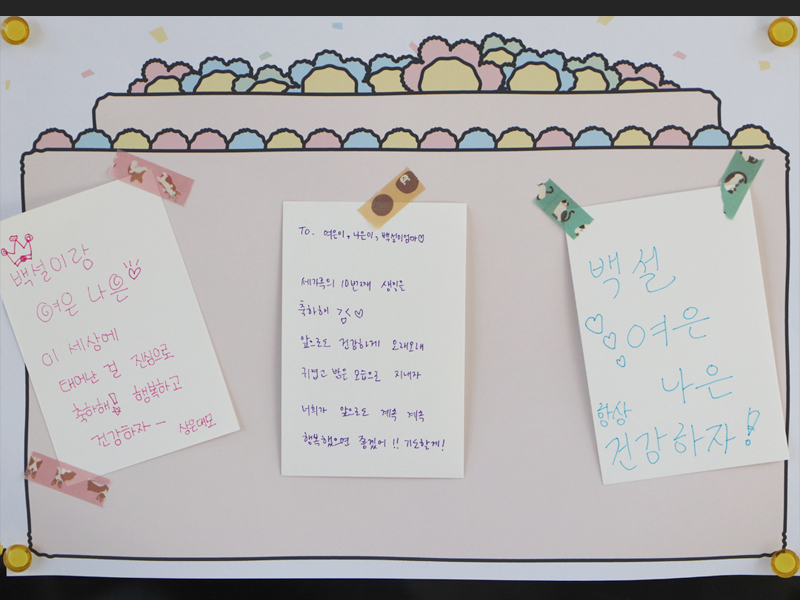 백설이랑
여은 나은
이 세상에
태어난 걸 진심으로
축하해! 행복하고
건강하자 ー 상은대모
To. 여은이, 나은이, 백설이엄마♡
세가족의 10번째 생일은
축하해 ♡
앞으로도 건강하게 오래오래
귀엽고 밝은 모습으로 지내자
너희가 앞으로도 계속 계속
행복했으면 좋겠어!! 기도할게!
백설
여은
나은
항상
건강하자!